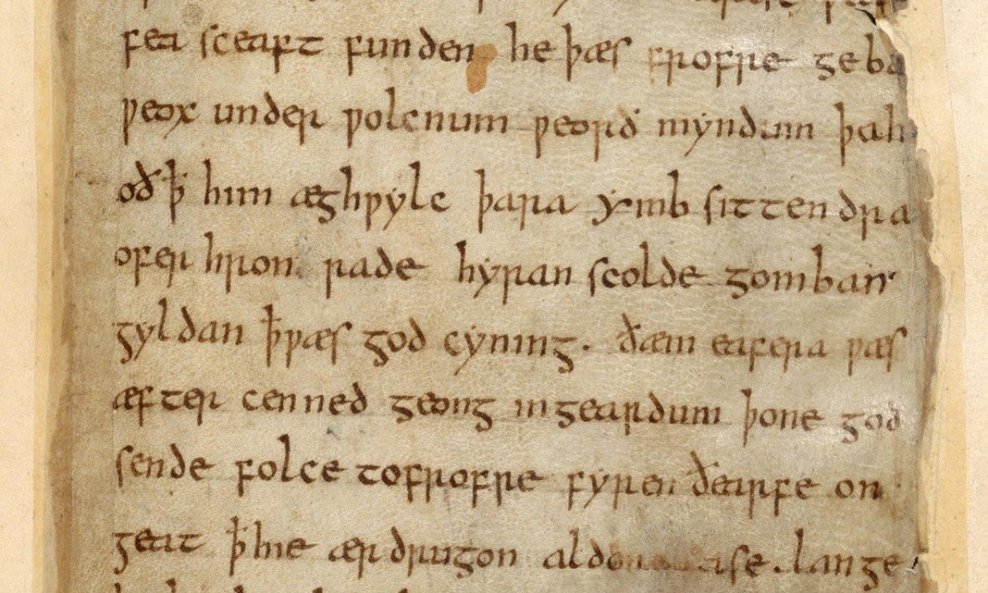 fea sceaft funden he þæs frofre geba
ƿeox under ƿolcnum ƿeorð myndum þah
oð ꝥ him æghƿylc þara ymb sittendra
ofer hron rade hyran scolde gomban
gyldan ꝥ ƿæs god cyning. ðæm eafera ƿæs
æfter cenned geong in geardum þone god
sende folce tofrofre fyren ðearfe on
geat ꝥ hie ær drugon aldo ase. lange